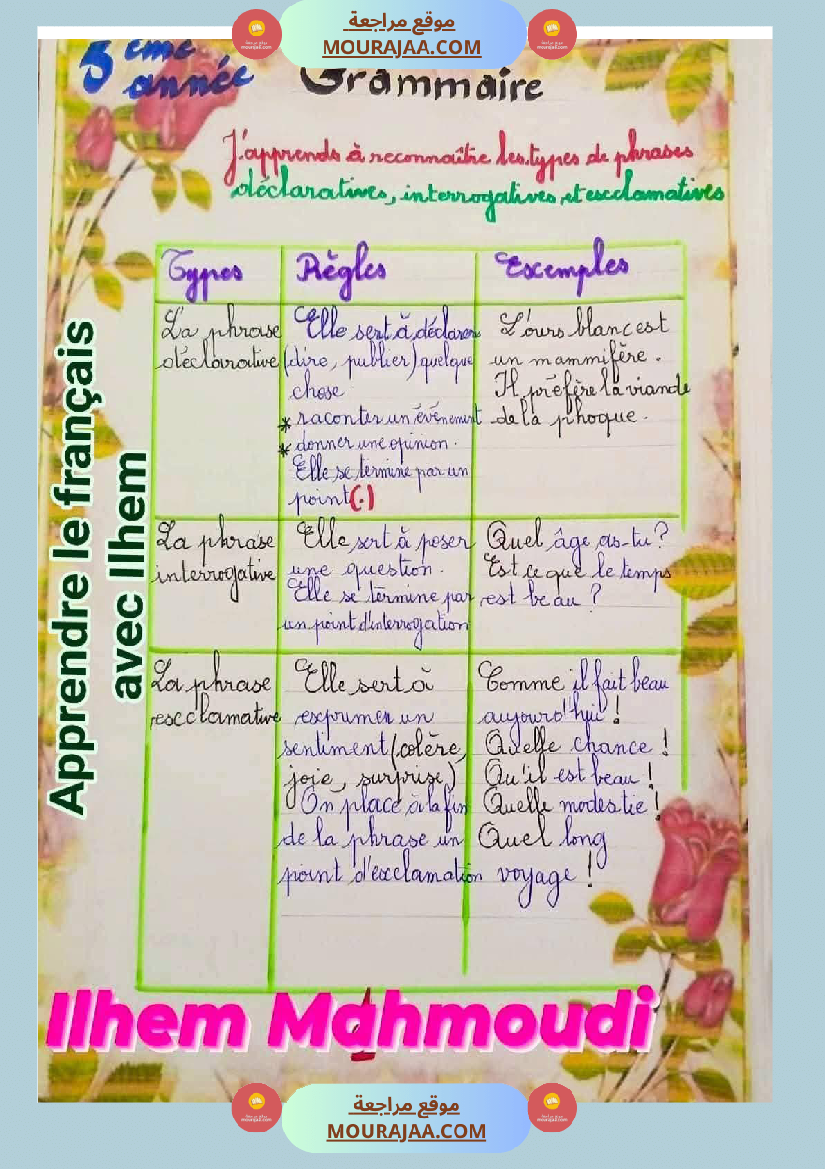 موقع مراجعة
MOURAJAA.COM
5 ème
année
Grammaire
J'apprends à reconnaître les types de phrases
déclaratives, interrogatives et esclamatives
Types
Règles
Exemples
La phrase
déclarative
Elle sert à déclarer
(dire, publier) quelque
chose
* raconter un événement
* donner une opinion.
Elle se termine par un
point (.)
L'ours blanc est
un mammifère.
Il préfère la viande
de la phoque.
La phrase
interrogative
Elle sert à poser
une question.
Elle se termine par
un point d'interrogation
Quel âge as-tu?
Est ce que le temps
est beau ?
La phrase
esclamative
Elle sert à
exprimer un
sentiment (colère,
joie, surprise)
On place à la fin
de la phrase un
point d'exclamation
Comme il fait beau
aujourd'hui !
Quelle chance !
Qu'il est beau !
Quelle modestie !
Quel long
voyage !
Apprendre le français
avec Ilhem
Ilhem Mahmoudi
موقع مراجعة
MOURAJAA.COM